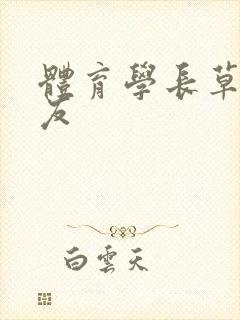 體育學長草
友
白雲天